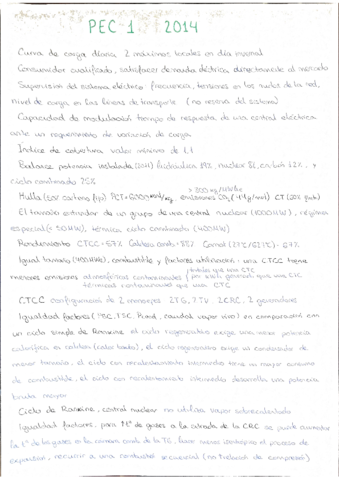 PEC-1 2014
Curva de carga diaria 2 máximos locales en día invernal
Consumidor cualificado, satisfacer demanda eléctrica directamente al mercado
Supervisión del sistema eléctrico frecuencia, tensiones en los nudos de la red,
nivel de carga en las líneas de transporte (no reserva del sistema)
Capacidad de modulación tiempo de respuesta de una central eléctrica
ante un requerimiento de variación de carga
Índice de cobertura valor mínimo de 1.1
Balance potencia instalada (2011) hidráulica 19%, nuclear 8%, carbón 12%, y
ciclo combinado 25%
Hulla (65% carbono fijo) emisiones CO₂ CT (20% rdto)
El tamaño estándar de un grupo de una central nuclear (1000MW), régimen
especial (<50MW), térmica ciclo combinado (400MW)
Rendimiento CTCC = 57% Caldera conv. = 87% Carnot 67%
Igual tamaño (400MW), combustible y factores utilización: una CTCC tiene
menores emisiones atmosféricas contaminantes
térmica contaminante que una CTC
CTCC configuración de 2 monoejes 2TG, 2TV, 2CRC, 2 generadores
Igualdad factores caudal vapor vivo) en comparación con
un ciclo simple de Rankine el ciclo regenerativo exige una menor potencia
calorífica en caldera (calor total), el ciclo regenerativo exige un condensador de
menor tamaño, el ciclo con recalentamiento intermedio tiene un mayor consumo
de combustible, el ciclo con recalentamiento intermedio desarrolla una potencia
bruta mayor
Ciclo de Rankine, central nuclear no utiliza vapor sobrecalentado
Igualdad factores, para ↑tª de gases a la entrada de la CRC se puede aumentar
la tª de los gases en la cámara comb. de la TG, hacer menos isentrópico el proceso de
expansión, recurrir a una combustión secuencial (no relación de compresión)